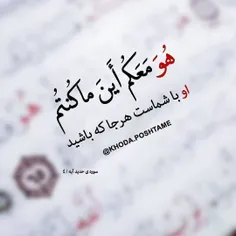 هُوَ مَعَكُمْ أَینَ مَا كُنتُمْ
او با شماست هر جا که باشید
@KHODA.POSHTAME
سوره‌ی حدید آیه ٤